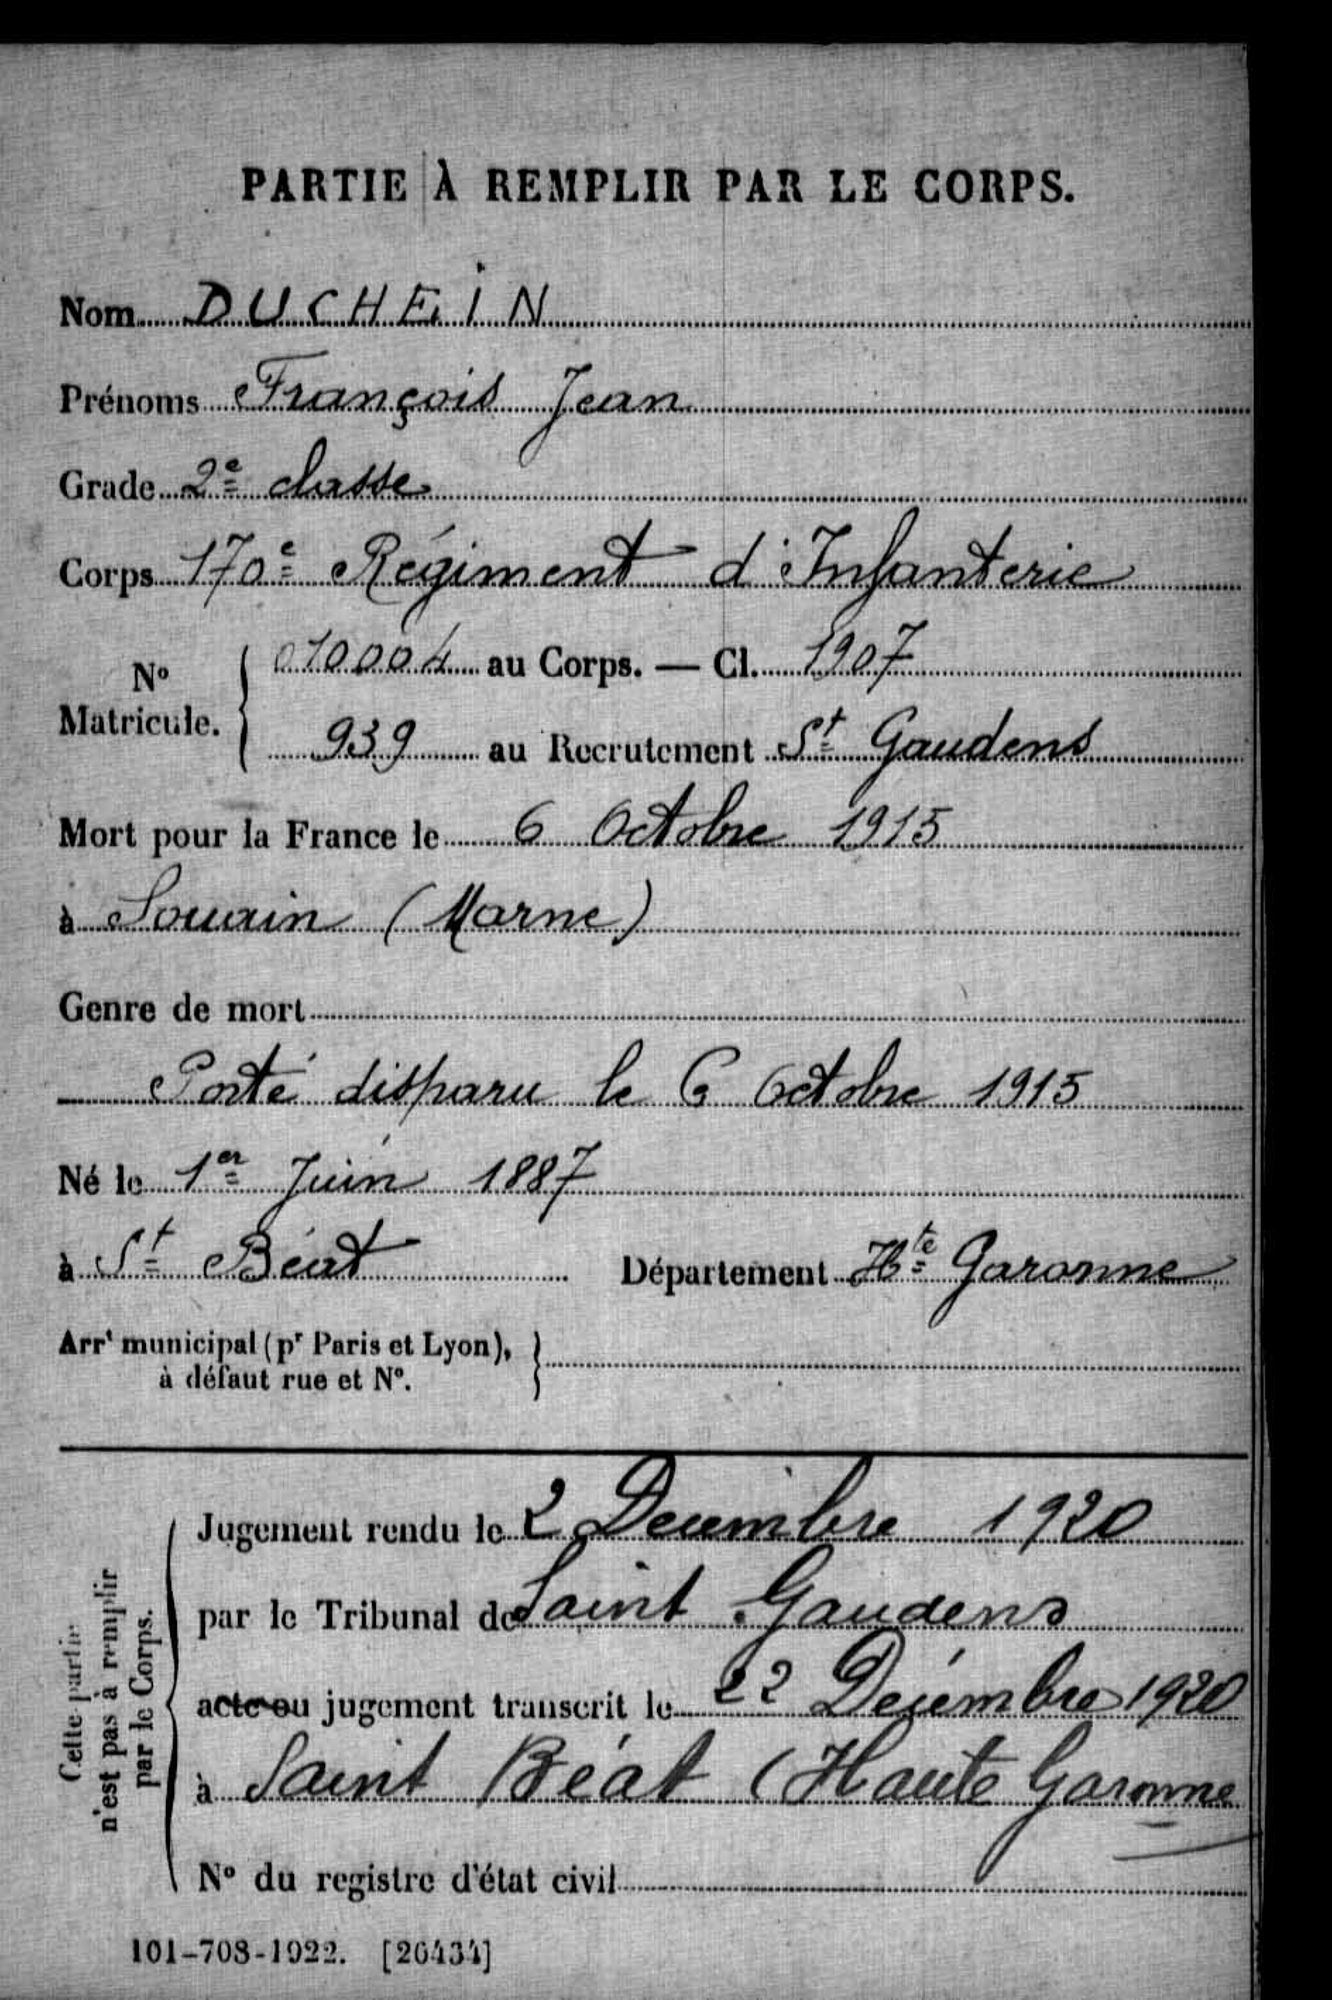 PARTIE À REMPLIR PAR LE CORPS.
Nom DUCHEIN
Prénoms François Jean
Grade 2e classe
Corps 170e Régiment d'Infanterie
No Matricule. { 010004 au Corps. — Cl. 1907
939 au Recrutement St Gaudens
Mort pour la France le 6 Octobre 1915
à Souain (Marne)
Genre de mort
Porté disparu le 6 Octobre 1915
Né le 1er Juin 1887
à St Béat Département Hte Garonne
Arrt municipal (pr Paris et Lyon),
à défaut rue et No. }
Cette partie
n'est pas à remplir
par le Corps.
Jugement rendu le 2 Decembre 1920
par le Tribunal de Saint Gaudens
acte ou jugement transcrit le 22 Décembre 1920
à Saint Béat (Haute Garonne
No du registre d'état civil
101-708-1922. [26434]